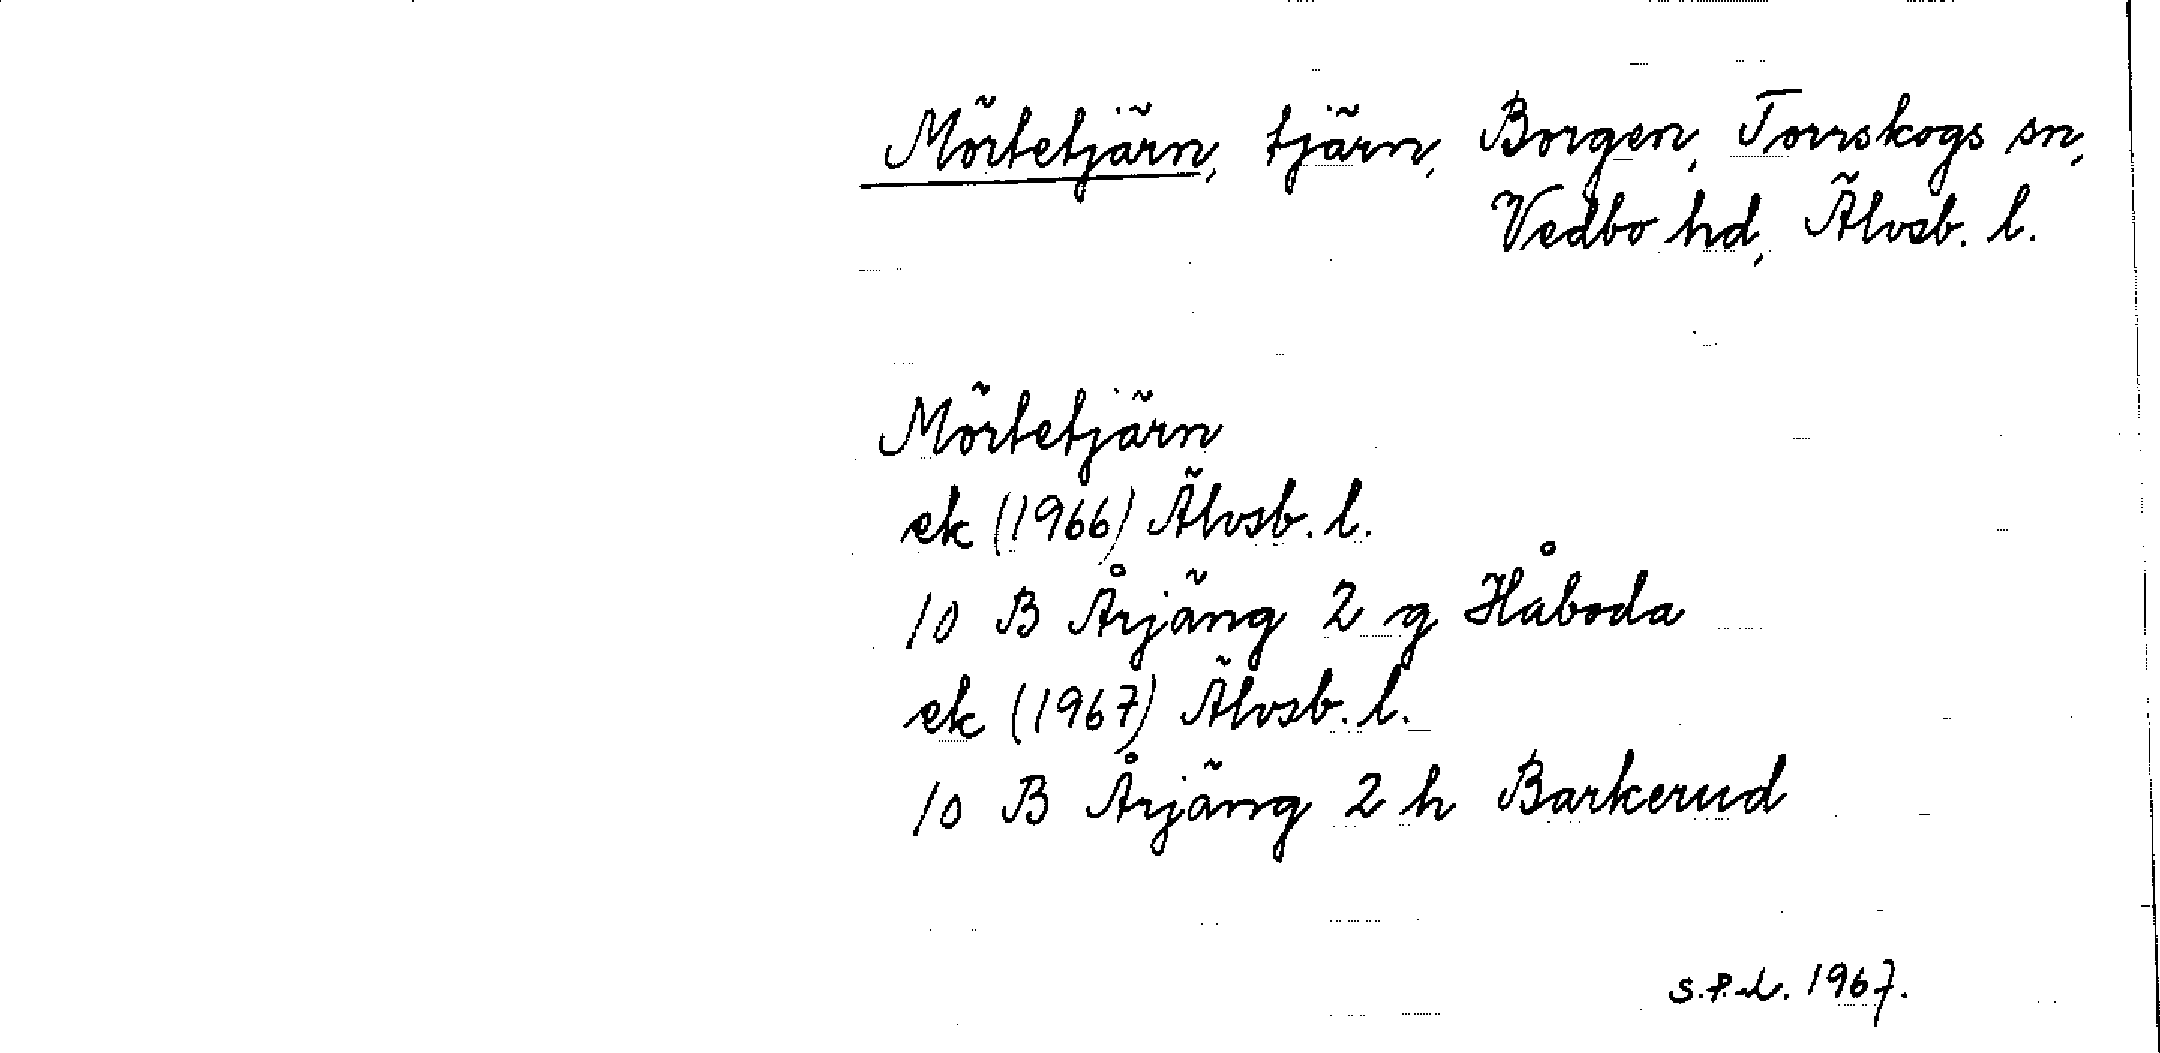 Mörtetjärn, tjärn, Borgen, Torrskogs sn,
Vedbo hd, Älvsb. l.
Mörtetjärn
ek (1966) Älvsb. l.
10 B Årjäng 2 g Håboda
ek (1967) Älvsb. l.
10 B Årjäng 2 h Barkerud
S.P.L. 1967.